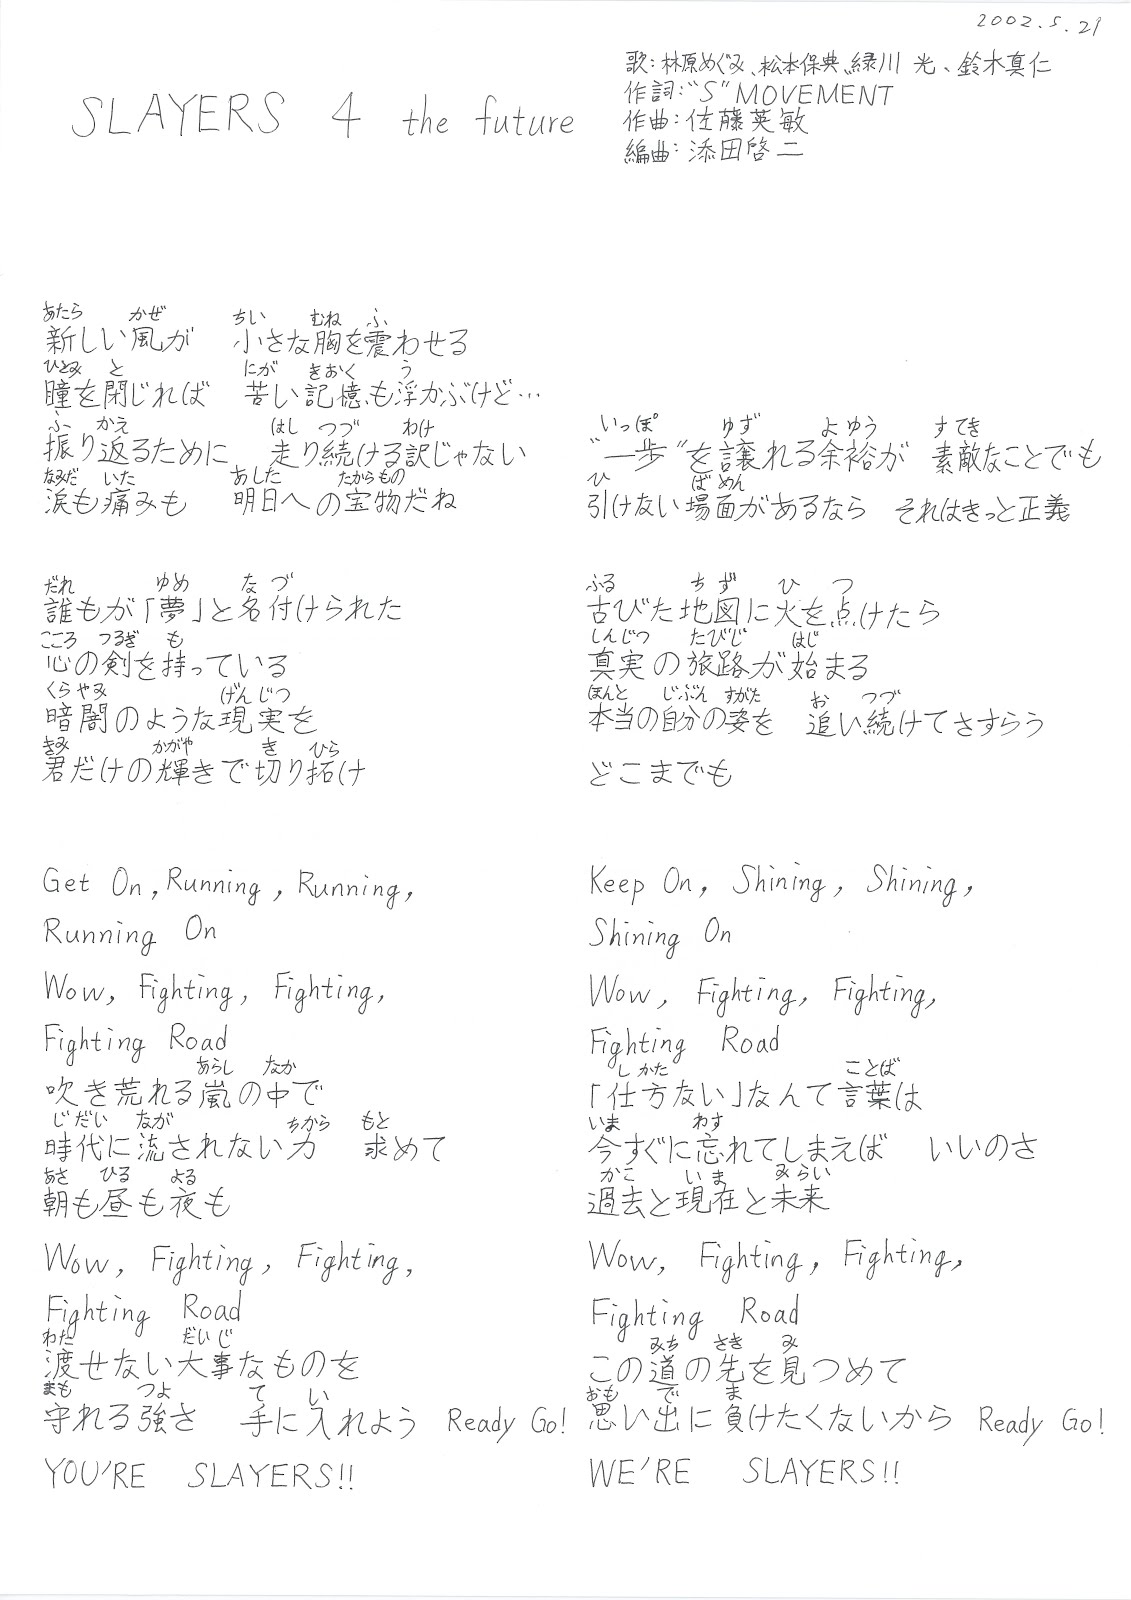 2002.5.29
SLAYERS 4 the future
歌:林原めぐみ、松本保典、緑川 光、鈴木真仁
作詞:"S" MOVEMENT
作曲:佐藤英敏
編曲:添田啓二
あたら かぜ ちい むね ふ
新しい風が 小さな胸を震わせる
ひとみ と にが きおく う
瞳を閉じれば 苦い記憶も浮かぶけど…
ふ かえ はし つづ わけ
振り返るために 走り続ける訳じゃない
なみだ いた あした たからもの
涙も痛みも 明日への宝物だね
だれ ゆめ なづ
誰もが「夢」と名付けられた
こころ つるぎ も
心の剣を持っている
くらやみ げんじつ
暗闇のような現実を
きみ かがや き ひら
君だけの輝きで切り拓け
Get On, Running, Running,
Running On
Wow, Fighting, Fighting,
Fighting Road
あらし なか
吹き荒れる嵐の中で
じだい なが ちから もと
時代に流されない力 求めて
あさ ひる よる
朝も昼も夜も
Wow, Fighting, Fighting,
Fighting Road
わた だいじ
渡せない大事なものを
まも つよ て い
守れる強さ 手に入れよう Ready Go!
YOU'RE SLAYERS!!
いっぽ ゆず よゆう すてき
"一歩"を譲れる余裕が 素敵なことでも
ひ ばめん
引けない場面があるなら それはきっと正義
ふる ちず ひ つ
古びた地図に火を点けたら
しんじつ たびじ はじ
真実の旅路が始まる
ほんと じぶん すがた お つづ
本当の自分の姿を 追い続けてさすらう
どこまでも
Keep On, Shining, Shining,
Shining On
Wow, Fighting, Fighting,
Fighting Road
しかた ことば
「仕方ない」なんて言葉は
いま わす
今すぐに忘れてしまえば いいのさ
かこ いま みらい
過去と現在と未来
Wow, Fighting, Fighting,
Fighting Road
みち さき み
この道の先を見つめて
おも で ま
思い出に負けたくないから Ready Go!
WE'RE SLAYERS!!